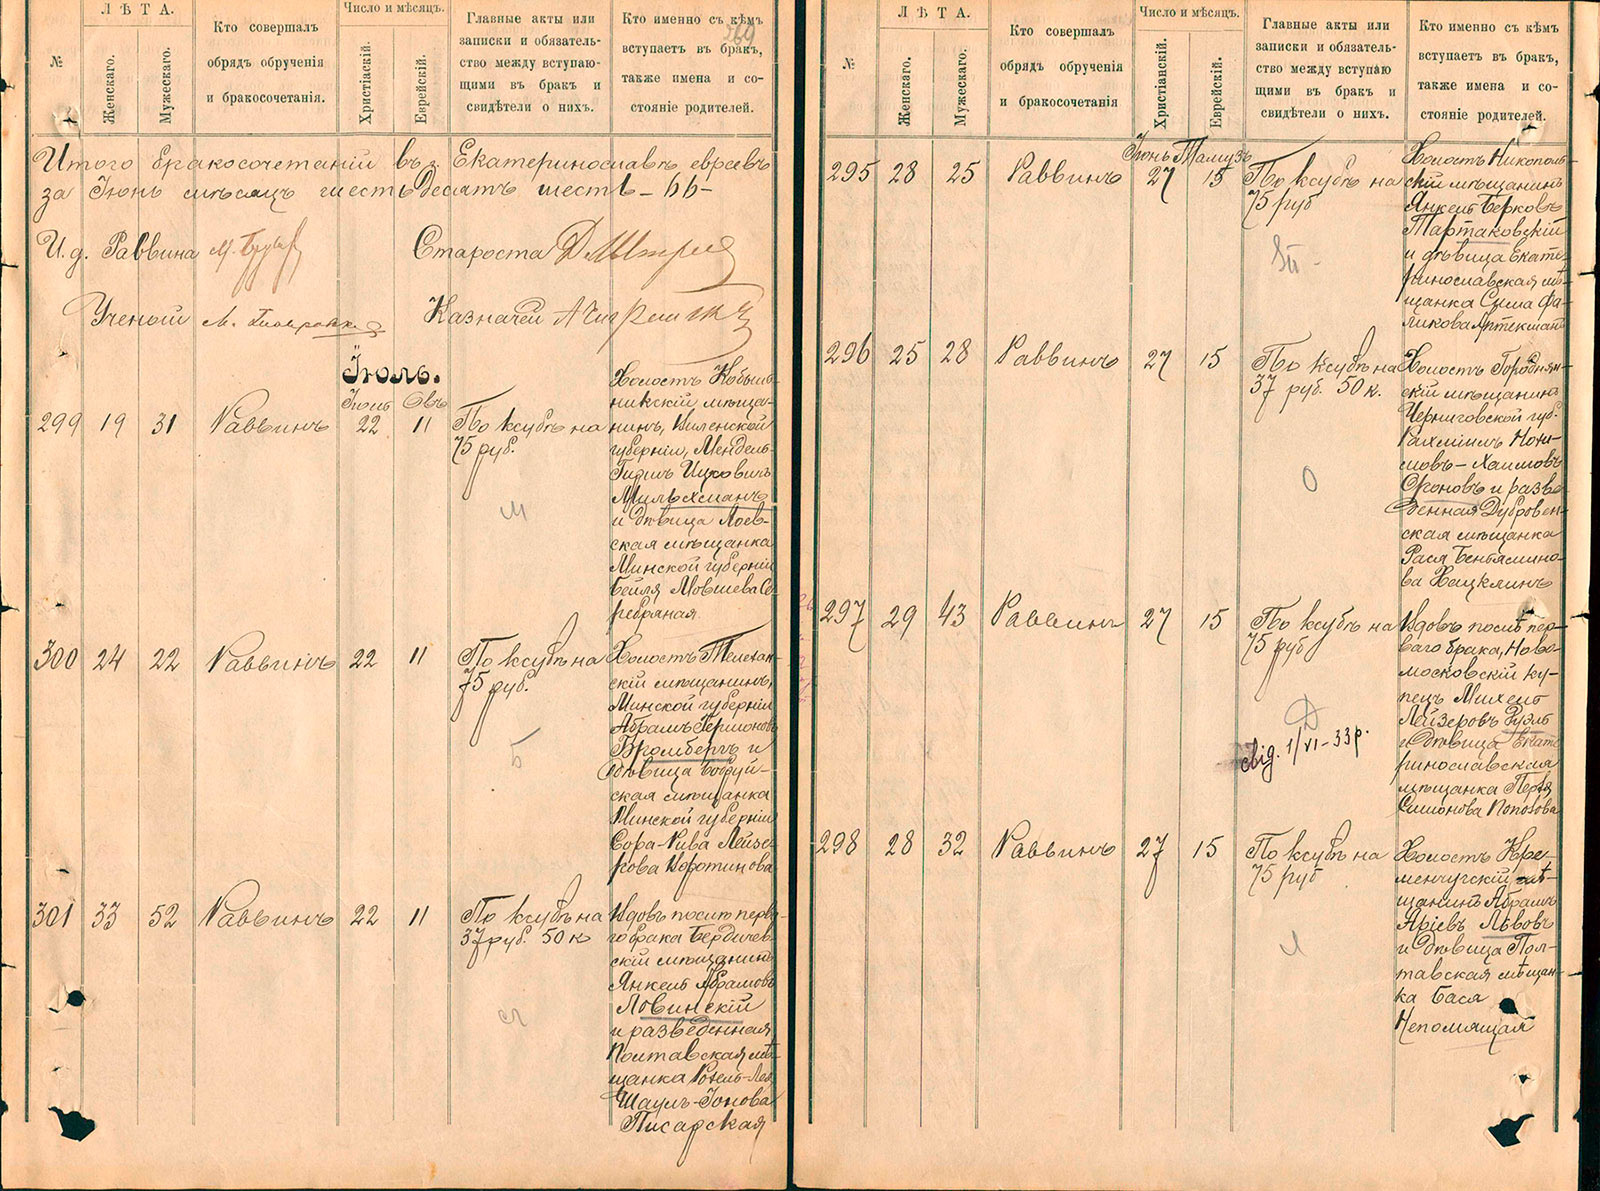 Л Ѣ Т А.
Число и мѣсяцъ.
№
Женскаго.
Мужескаго.
Кто совершалъ
обрядъ обрученія
и бракосочетанія.
Христіаскій.
Еврейскій.
Главные акты или
записки и обязатель-
ство между вступаю-
щими въ бракъ и
свидѣтели о нихъ.
Кто именно съ кѣмъ
вступаетъ въ бракъ,
также имена и со-
стояніе родителей.
269
Итого бракосочетаній въ г. Екатеринославѣ евреевъ
за Іюнь мѣсяцъ шестьдесятъ шесть – 66 –
И.д. Раввина
Староста
Ученый
Казначей
Іюль.
Іюль Овъ
299 19 31 Раввинъ 22 11
По ксубѣ на
75 руб.
М
Холостъ Кобыль-
никскій мѣща-
нинъ, Виленской
губерніи, Мендель-
Ицковичъ
Мильхманъ
и дѣвица Лоев-
ская мѣщанка
Минской губерніи
Бейля Мовшева Се-
ребряная
300 24 22 Раввинъ 22 11
По ксубѣ на
75 руб.
Б
Холостъ Телехан-
скій мѣщанинъ,
Минской губерніи
Абрамъ Гершоновъ
Бромбергъ и
дѣвица Бобруй-
ская мѣщанка
Минской губерніи
Сора-Рива Лейзе-
рова
301 33 52 Раввинъ 22 11
По ксубѣ на
37 руб. 50 к
Л
Вдовъ послѣ перва-
го брака Бердичев-
скій мѣщанинъ
Янкель Абрамовъ
Ловинскій
и разведенная
Полтавская мѣ-
щанка Рохель-Лея
Шаулъ-Іонова
Писарская
Л Ѣ Т А.
Число и мѣсяцъ.
№
Женскаго.
Мужескаго.
Кто совершалъ
обрядъ обрученія
и бракосочетанія
Христіанскій.
Еврейскій.
Главные акты или
записки и обязатель-
ство между вступаю
щими въ бракъ и
свидѣтели о нихъ.
Кто именно съ кѣмъ
вступаетъ въ бракъ,
также имена и со-
стояніе родителей.
Іюнь Тамузъ
295 28 25 Раввинъ 27 15
По ксубѣ на
75 руб
Холостъ Никополь-
скій мѣщанинъ
Янкель Берковъ
Тартаковскій
и дѣвица Екате-
ринославская мѣ-
щанка Сима Фа-
ликова
296 25 28 Раввинъ 27 15
По ксубѣ на
37 руб. 50 к.
О
Холостъ Городнян-
скій мѣщанинъ
Черниговской губ.
Рахміилъ
Хаимовъ
и разве-
денная Дубровен-
ская мѣщанка
Рася Беньямино-
ва Хацклинъ
297 29 43 Раввинъ 27 15
По ксубѣ на
75 руб
Д
свід. 1/VI – 33 р.
Вдовъ послѣ пер-
ваго брака, Ново-
московскій ку-
пецъ Михель
Лейзеровъ
и дѣвица Екате
ринославская
мѣщанка Перля
Симонова Попозова
298 28 32 Раввинъ 27 15
По ксубѣ на
75 руб
Л
Холостъ Кре-
менчугскій мѣ-
щанинъ Абрамъ
Аріевъ Львовъ
и дѣвица Пол-
тавская мѣщан-
ка Бася
Непомящая